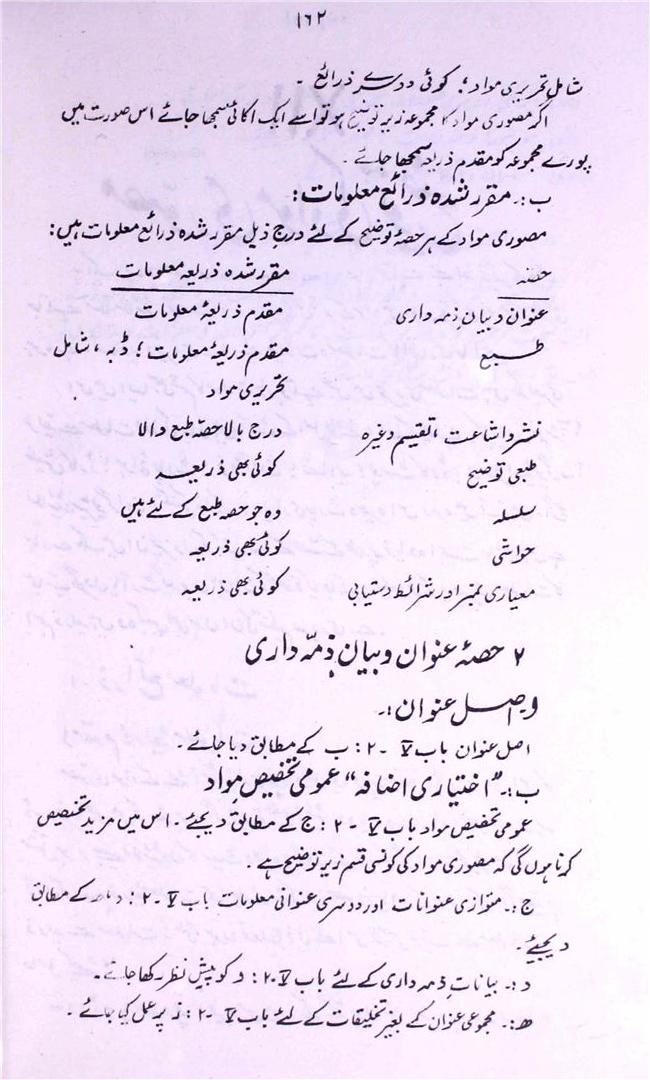 ۱۶۲
شامل تحریری مواد؛ کوئی دوسرے ذرائع ۔
اگر مصوری مواد کا مجموعہ زیر توضیح ہو تو اسے ایک اکائی سمجھا جائے اس صورت میں
پورے مجموعہ کو مقدم ذریعہ سمجھا جائے ۔
ب:۔ مقرر شدہ ذرائع معلومات:
مصوری مواد کے ہر حصۂ توضیح کے لئے درج ذیل مقرر شدہ ذرائع معلومات ہیں:
حصّہ مقرر شدہ ذریعہ معلومات
عنوان و بیان ذمہ داری مقدم ذریعۂ معلومات
طبع مقدم ذریعۂ معلومات؛ ڈبہ، شامل
تحریری مواد
نشر و اشاعت، تقسیم وغیرہ درج بالا حصّہ طبع والا
طبعی توضیح کوئی بھی ذریعہ
سلسلہ وہ جو حصہ طبع کے لئے ہیں
حواشی کوئی بھی ذریعہ
معیاری نمبر اور شرائط دستیابی کوئی بھی ذریعہ
۲ حصۂ عنوان و بیان ذمّہ داری
اصل عنوان:۔
اصل عنوان باب V ۔۲: ب کے مطابق دیا جائے ۔
ب:۔ "اختیاری اضافہ" عمومی تخصیص مواد
عمومی تخصیص مواد باب V ۔ ۲: ج کے مطابق دیجئے ۔ اس میں مزید تخصیص
کرنا ہوں گی کہ مصوری مواد کی کونسی قسم زیر توضیح ہے ۔
ج:۔ متوازی عنوانات اور دوسری عنوانی معلومات باب V ۔۲: کے مطابق
دیجیئے ۔
د:۔ بیانات ذمہ داری کے لئے باب V ۔۲: د کو پیش نظر رکھا جائے ۔
ھ:۔ مجموعی عنوان کے بغیر تخلیقات کے لئے باب V ۔۲: ز پر عمل کیا جائے ۔